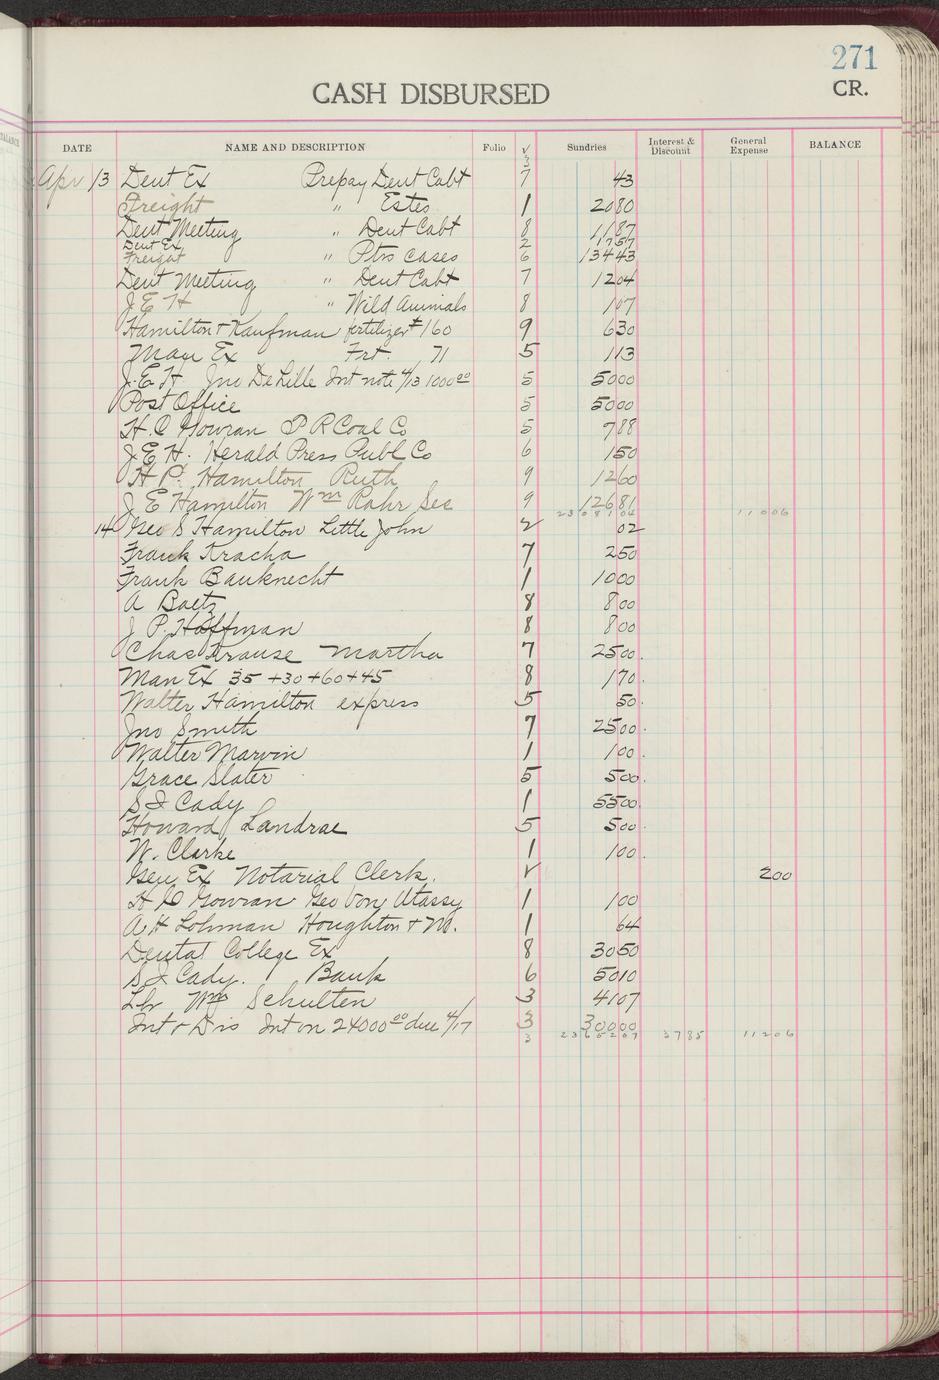 271
CASH DISBURSED CR.
DATE NAME AND DESCRIPTION Folio √ Sundries Interest & Discount General Expense BALANCE
3
Apr 13 Dent Ex Prepay Dent Cabt 7 43
Freight " Estes 1 2080
Dent Meeting " Dent Cabt 8 1187
Dent Ex 2 1757
Freight " Ptrs cases 6 13443
Dent Meeting " Dent Cabt 7 1204
J E H " Wild Animals 8 107
Hamilton & Kaufman fertilizer # 160 9 630
Man Ex Frt. 71 5 113
J.E.H. Jno DeLille Int note 4/13 1000 00 5 5000
Post Office 5 5000
H. C Gowran P R Coal Co 5 788
J E H. Herald Press Publ Co 6 150
H P. Hamilton Ruth 9 1260
J E Hamilton Wm Rahr Sec 9 12681
2308104 11006
14 Geo S Hamilton Little John 2 02
Frank Kracha 7 250
Frank Bauknecht 1 1000
A Baetz 8 800
J P. Hoffman 8 800
Chas Krause Martha 7 2500.
Man Ex 35 + 30 + 60 + 45 8 170.
Walter Hamilton express 5 50.
Jno Smith 7 2500.
Walter Marvin 1 100.
Grace Slater 5 500.
S J Cady 1 5500.
Howard Landrae 5 500.
W. Clarke 1 100.
Gen Ex Notarial Clerk. √ 200
H C Gowran Geo Von Utassy 1 100
A H Lohman Houghton & M. 1 64
Dental College Ex 8 3050
S J Cady. Bank 6 5010
Lbr Wm Schulten 3 4107
Int & Dis Int on 24000 00 due 4/17 3 30000
3 23665267 3785 11206